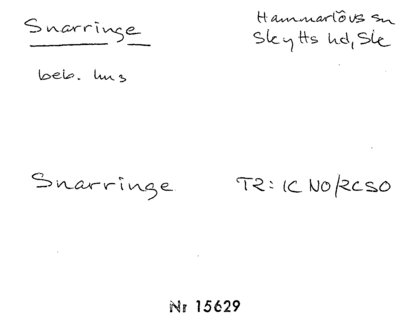 Snarringe
Hammarlövs sn
Skytts hd, Sk
beb. hus
Snarringe
T2: 1C NO/2CSO
Nr 15629